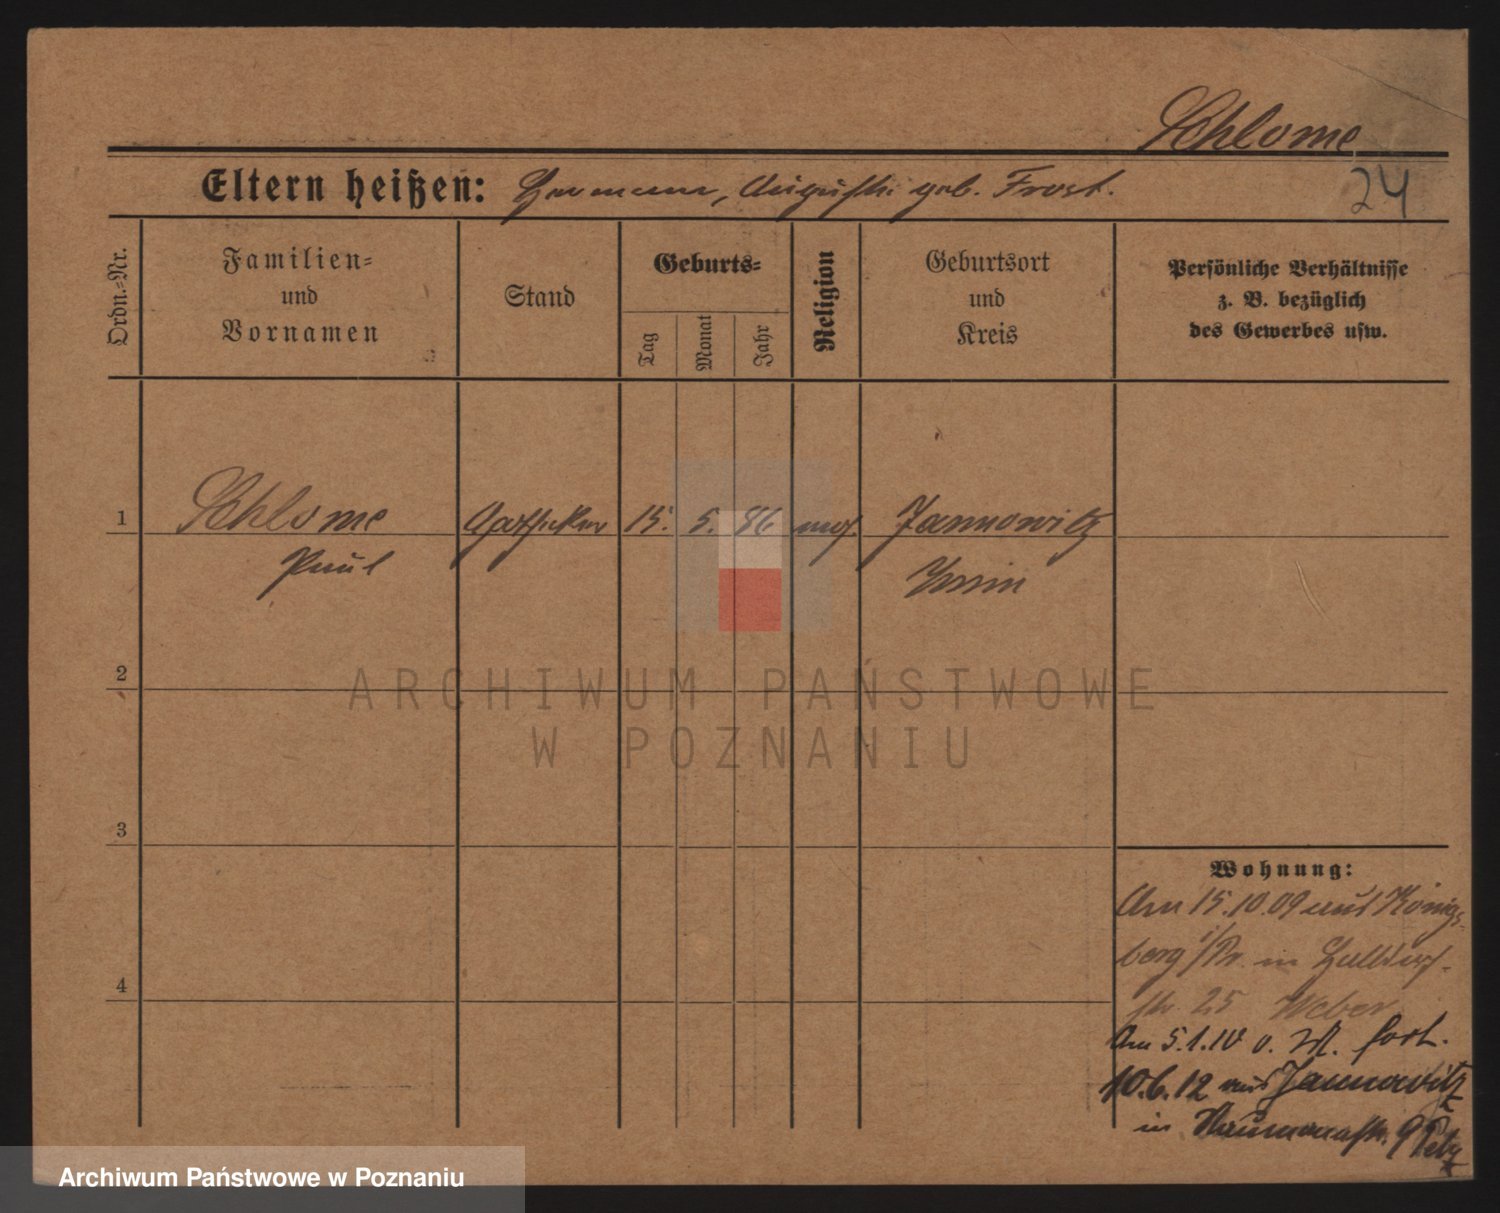 Schlome
Eltern heißen: Hermann, Auguste geb. Frost.
24
Ordn.-Nr.
Familien-
und
Vornamen
Stand
Geburts-
Tag
Monat
Jahr
Religion
Geburtsort
und
Kreis
Persönliche Verhältnisse
z. B. bezüglich
des Gewerbes usw.
1
Schlome
Paul
Apotheker
15.
5.
86
mos.
Jannowitz
Znin
2
3
4
Wohnung:
Am 15.10.09 aus Königs-
berg i/Pr. in
str. 25 Weber
Am 5.1.10 o. M. fort.
10.6.12 aus Jannowitz
in Naumannstr. 9
ARCHIWUM PAŃSTWOWE
W POZNANIU
Archiwum Państwowe w Poznaniu